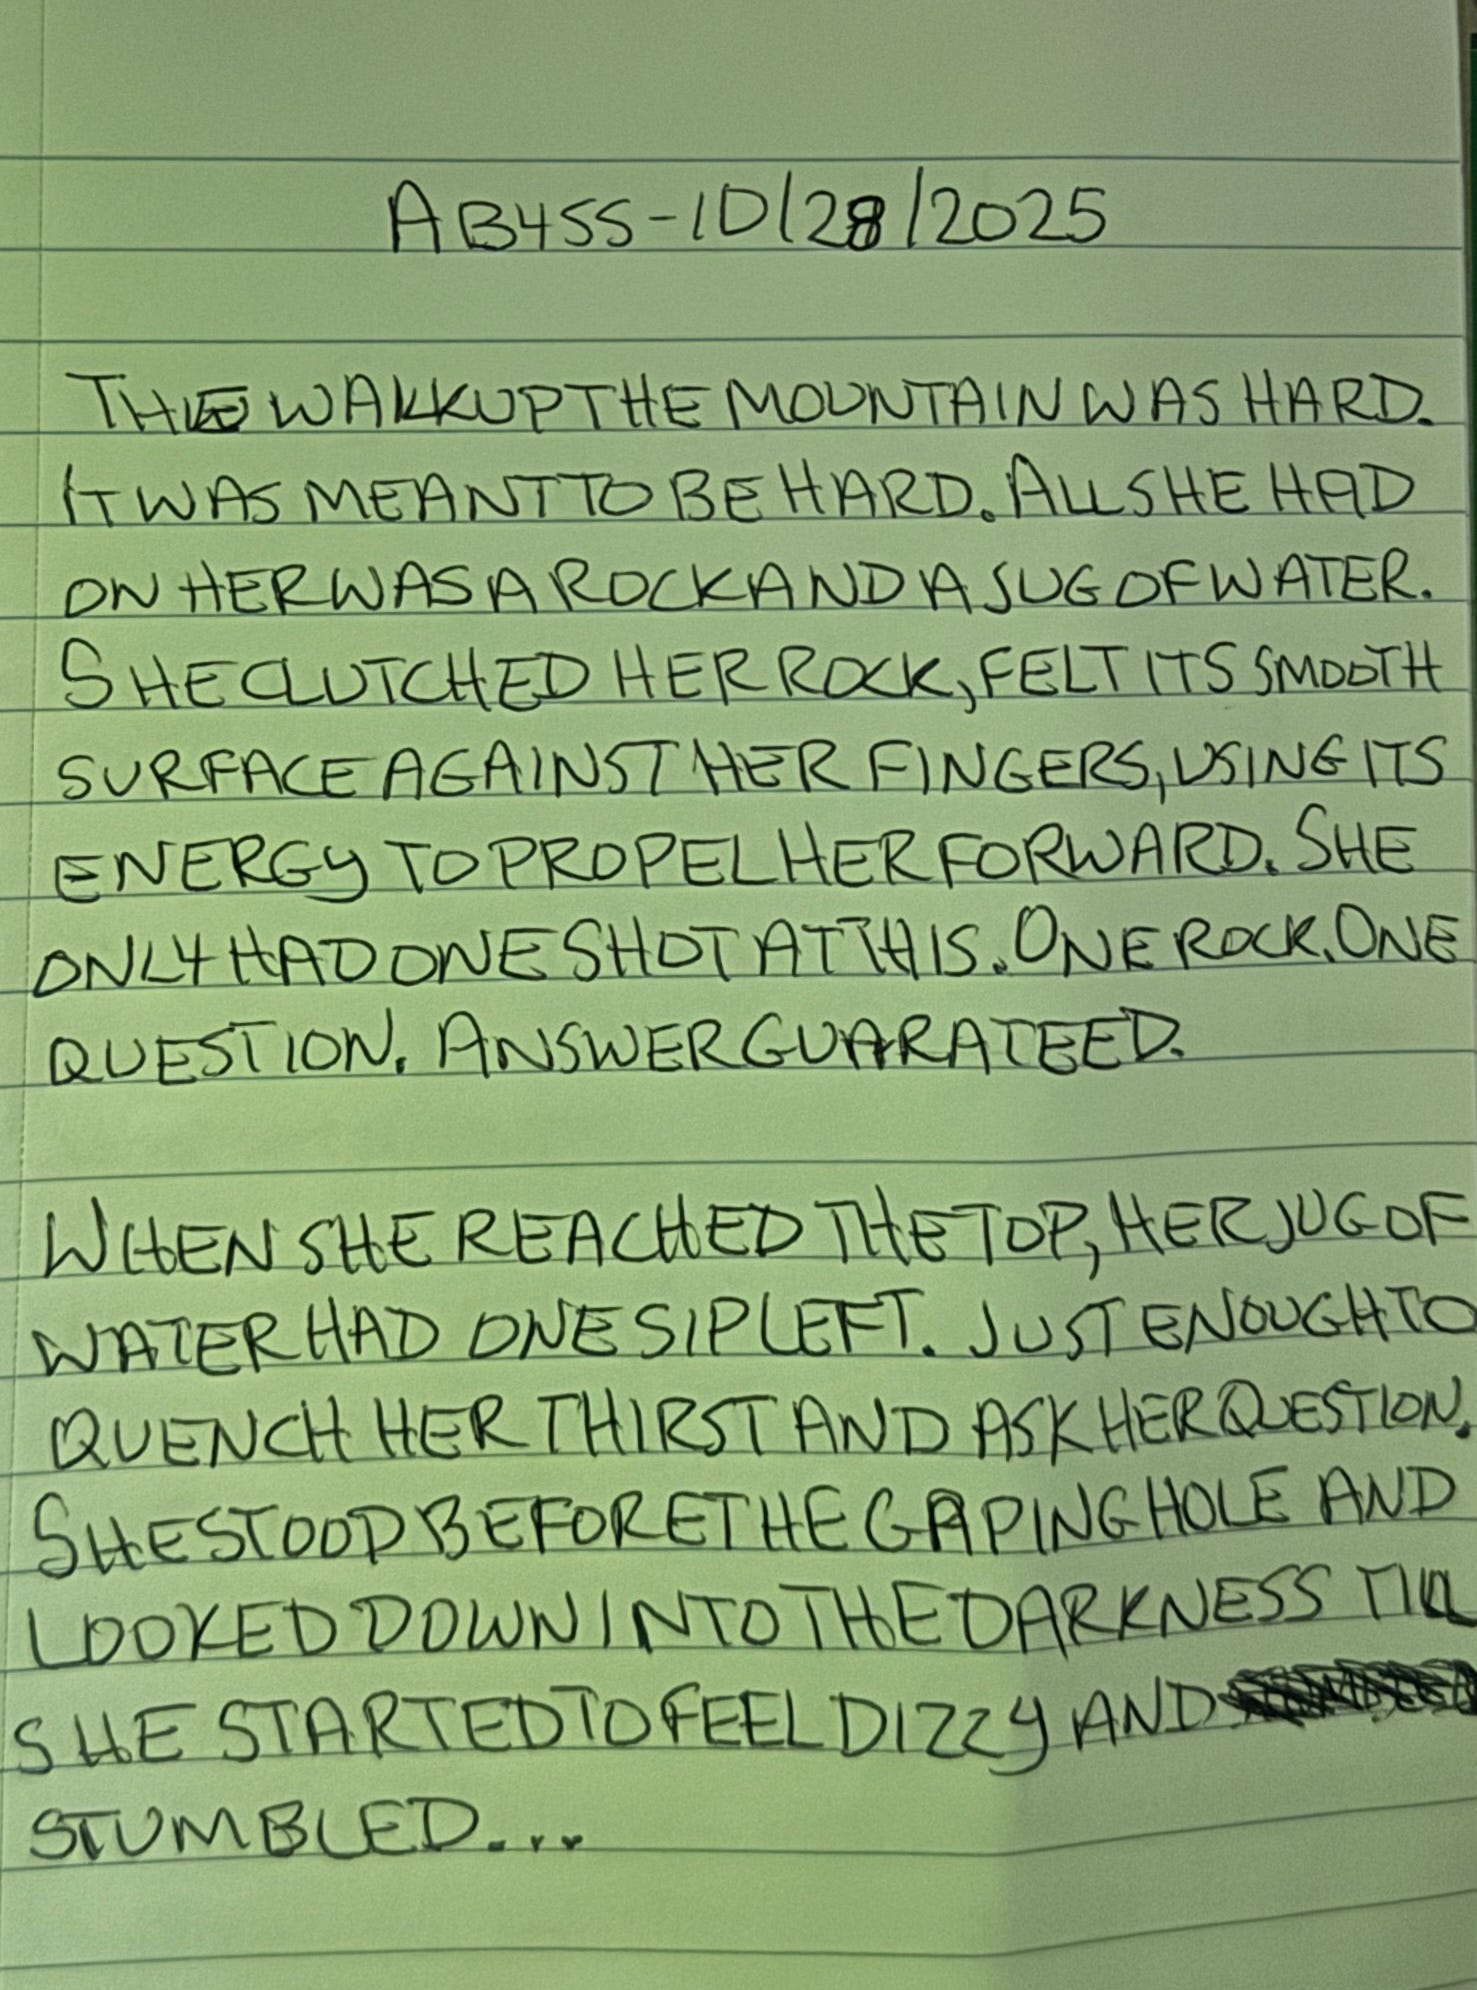 ABYSS-10/28/2025
THE WALK UP THE MOUNTAIN WAS HARD.
IT WAS MEANT TO BE HARD. ALL SHE HAD
ON HER WAS A ROCK AND A JUG OF WATER.
SHE CLUTCHED HER ROCK, FELT ITS SMOOTH
SURFACE AGAINST HER FINGERS, USING ITS
ENERGY TO PROPEL HER FORWARD. SHE
ONLY HAD ONE SHOT AT THIS. ONE ROCK. ONE
QUESTION. ANSWER GUARATEED.
WHEN SHE REACHED THE TOP, HER JUG OF
WATER HAD ONE SIP LEFT. JUST ENOUGH TO
QUENCH HER THIRST AND ASK HER QUESTION.
SHE STOOD BEFORE THE GAPING HOLE AND
LOOKED DOWN INTO THE DARKNESS TILL
SHE STARTED TO FEEL DIZZY AND
STUMBLED...